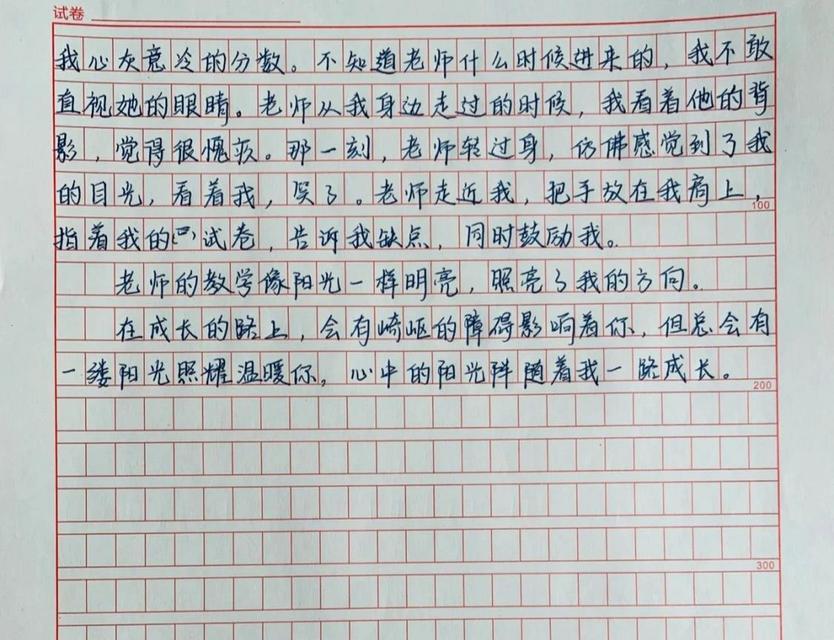 试卷
我心灰意冷的分数。不知道老师什么时候进来的，我不敢
直视她的眼睛。老师从我身边走过的时候，我看着他的背
影，觉得很愧疚。那一刻，老师转过身，仿佛感觉到了我
的目光，看着我，笑了。老师走近我，把手放在我肩上，
100
指着我的试卷，告诉我缺点，同时鼓励我。
老师的教学像阳光一样明亮，照亮了我的方向。
在成长的路上，会有崎岖的障碍影响着你，但总会有
一缕阳光照耀温暖你，心中的阳光伴随着我一路成长。
200
300